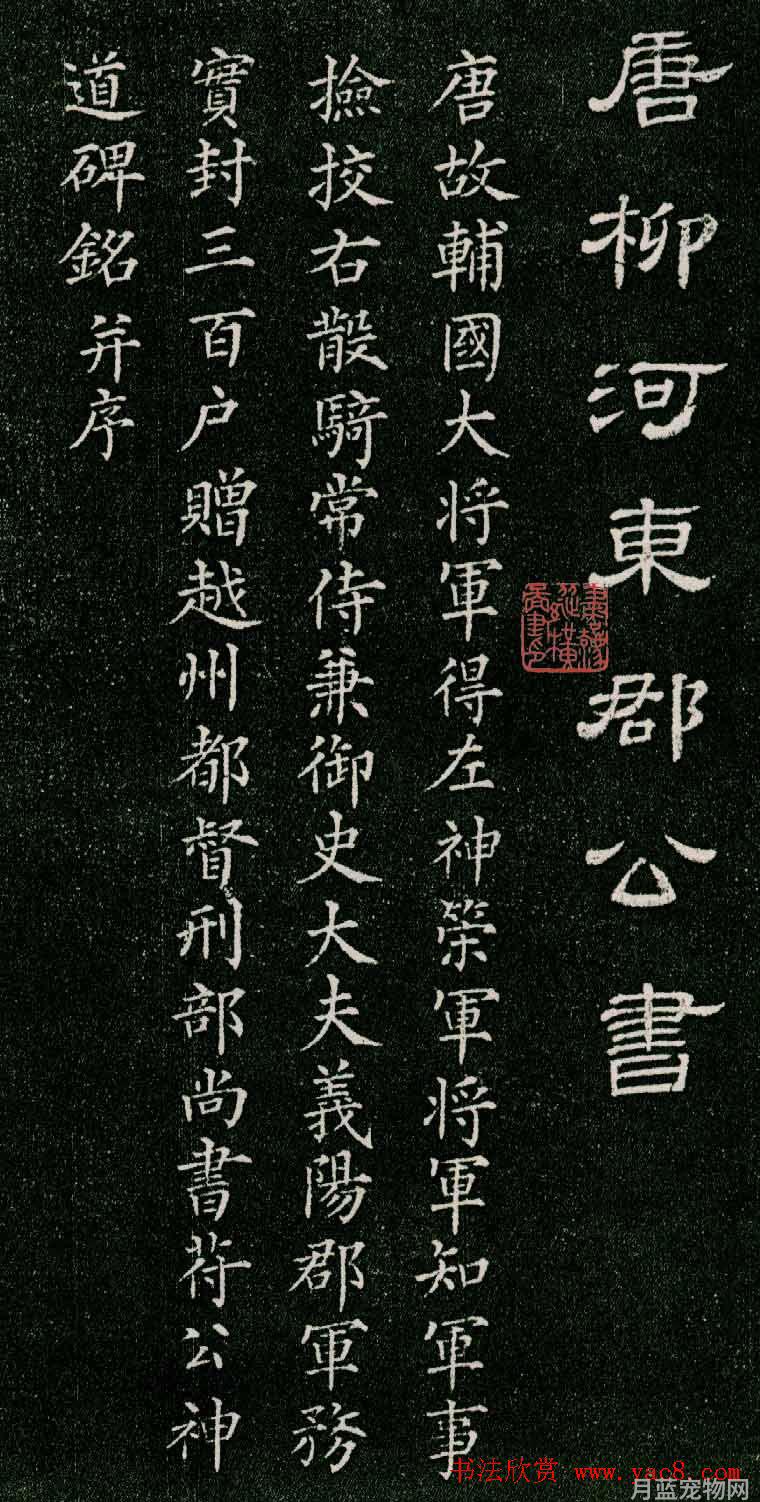 唐柳河東郡公書
唐故輔國大将軍得左神策軍将軍知軍事
撿挍右散騎常侍兼御史大夫義陽郡軍務
實封三百户贈越州都督刑部尚書苻公神
道碑銘并序
书法欣赏 www.yac8.com
月蓝宠物网